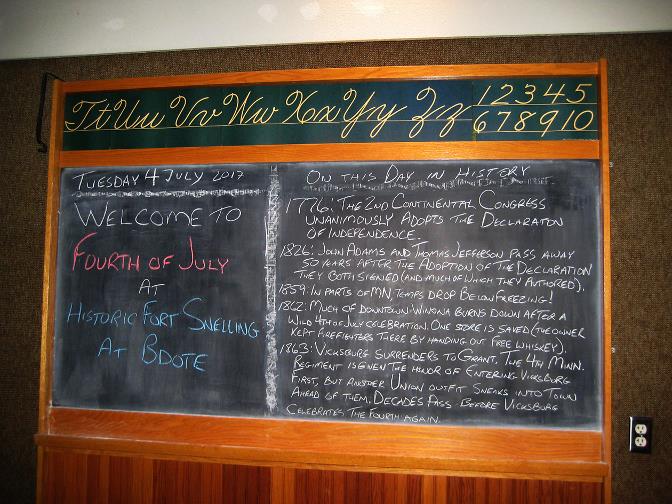 Tt Uu Vv Ww Xx Yy Zz 1 2 3 4 5
6 7 8 9 10
TUESDAY 4 JULY 2017
WELCOME TO
FOURTH OF JULY
AT
HISTORIC FORT SNELLING
AT BDOTE
ON THIS DAY IN HISTORY
1776: THE 2ND CONTINENTAL CONGRESS
UNANIMOUSLY ADOPTS THE DECLARATON
OF INDEPENDENCE.
1826: JOHN ADAMS AND THOMAS JEFFERSON PASS AWAY
50 YEARS AFTER THE ADOPTION OF THE DECLARATION
THEY BOTH SIGNED (AND MUCH OF WHICH THEY AUTHORED).
1859: IN PARTS OF MN, TEMPS DROP BELOW FREEZING!
1862: MUCH OF DOWNTOWN WINONA BURNS DOWN AFTER A
WILD 4TH OF JULY CELEBRATION. ONE STORE IS SAVED (THE OWNER
KEPT FIREFIGHTERS THERE BY HANDING OUT FREE WHISKEY).
1863: VICKSBURG SURRENDERS TO GRANT. THE 4TH MINN.
REGIMENT IS GIVEN THE HONOR OF ENTERING VICKSBURG
FIRST, BUT ANOTHER UNION OUTFIT SNEAKS INTO TOWN
AHEAD OF THEM. DECADES PASS BEFORE VICKSBURG
CELEBRATES THE FOURTH AGAIN.